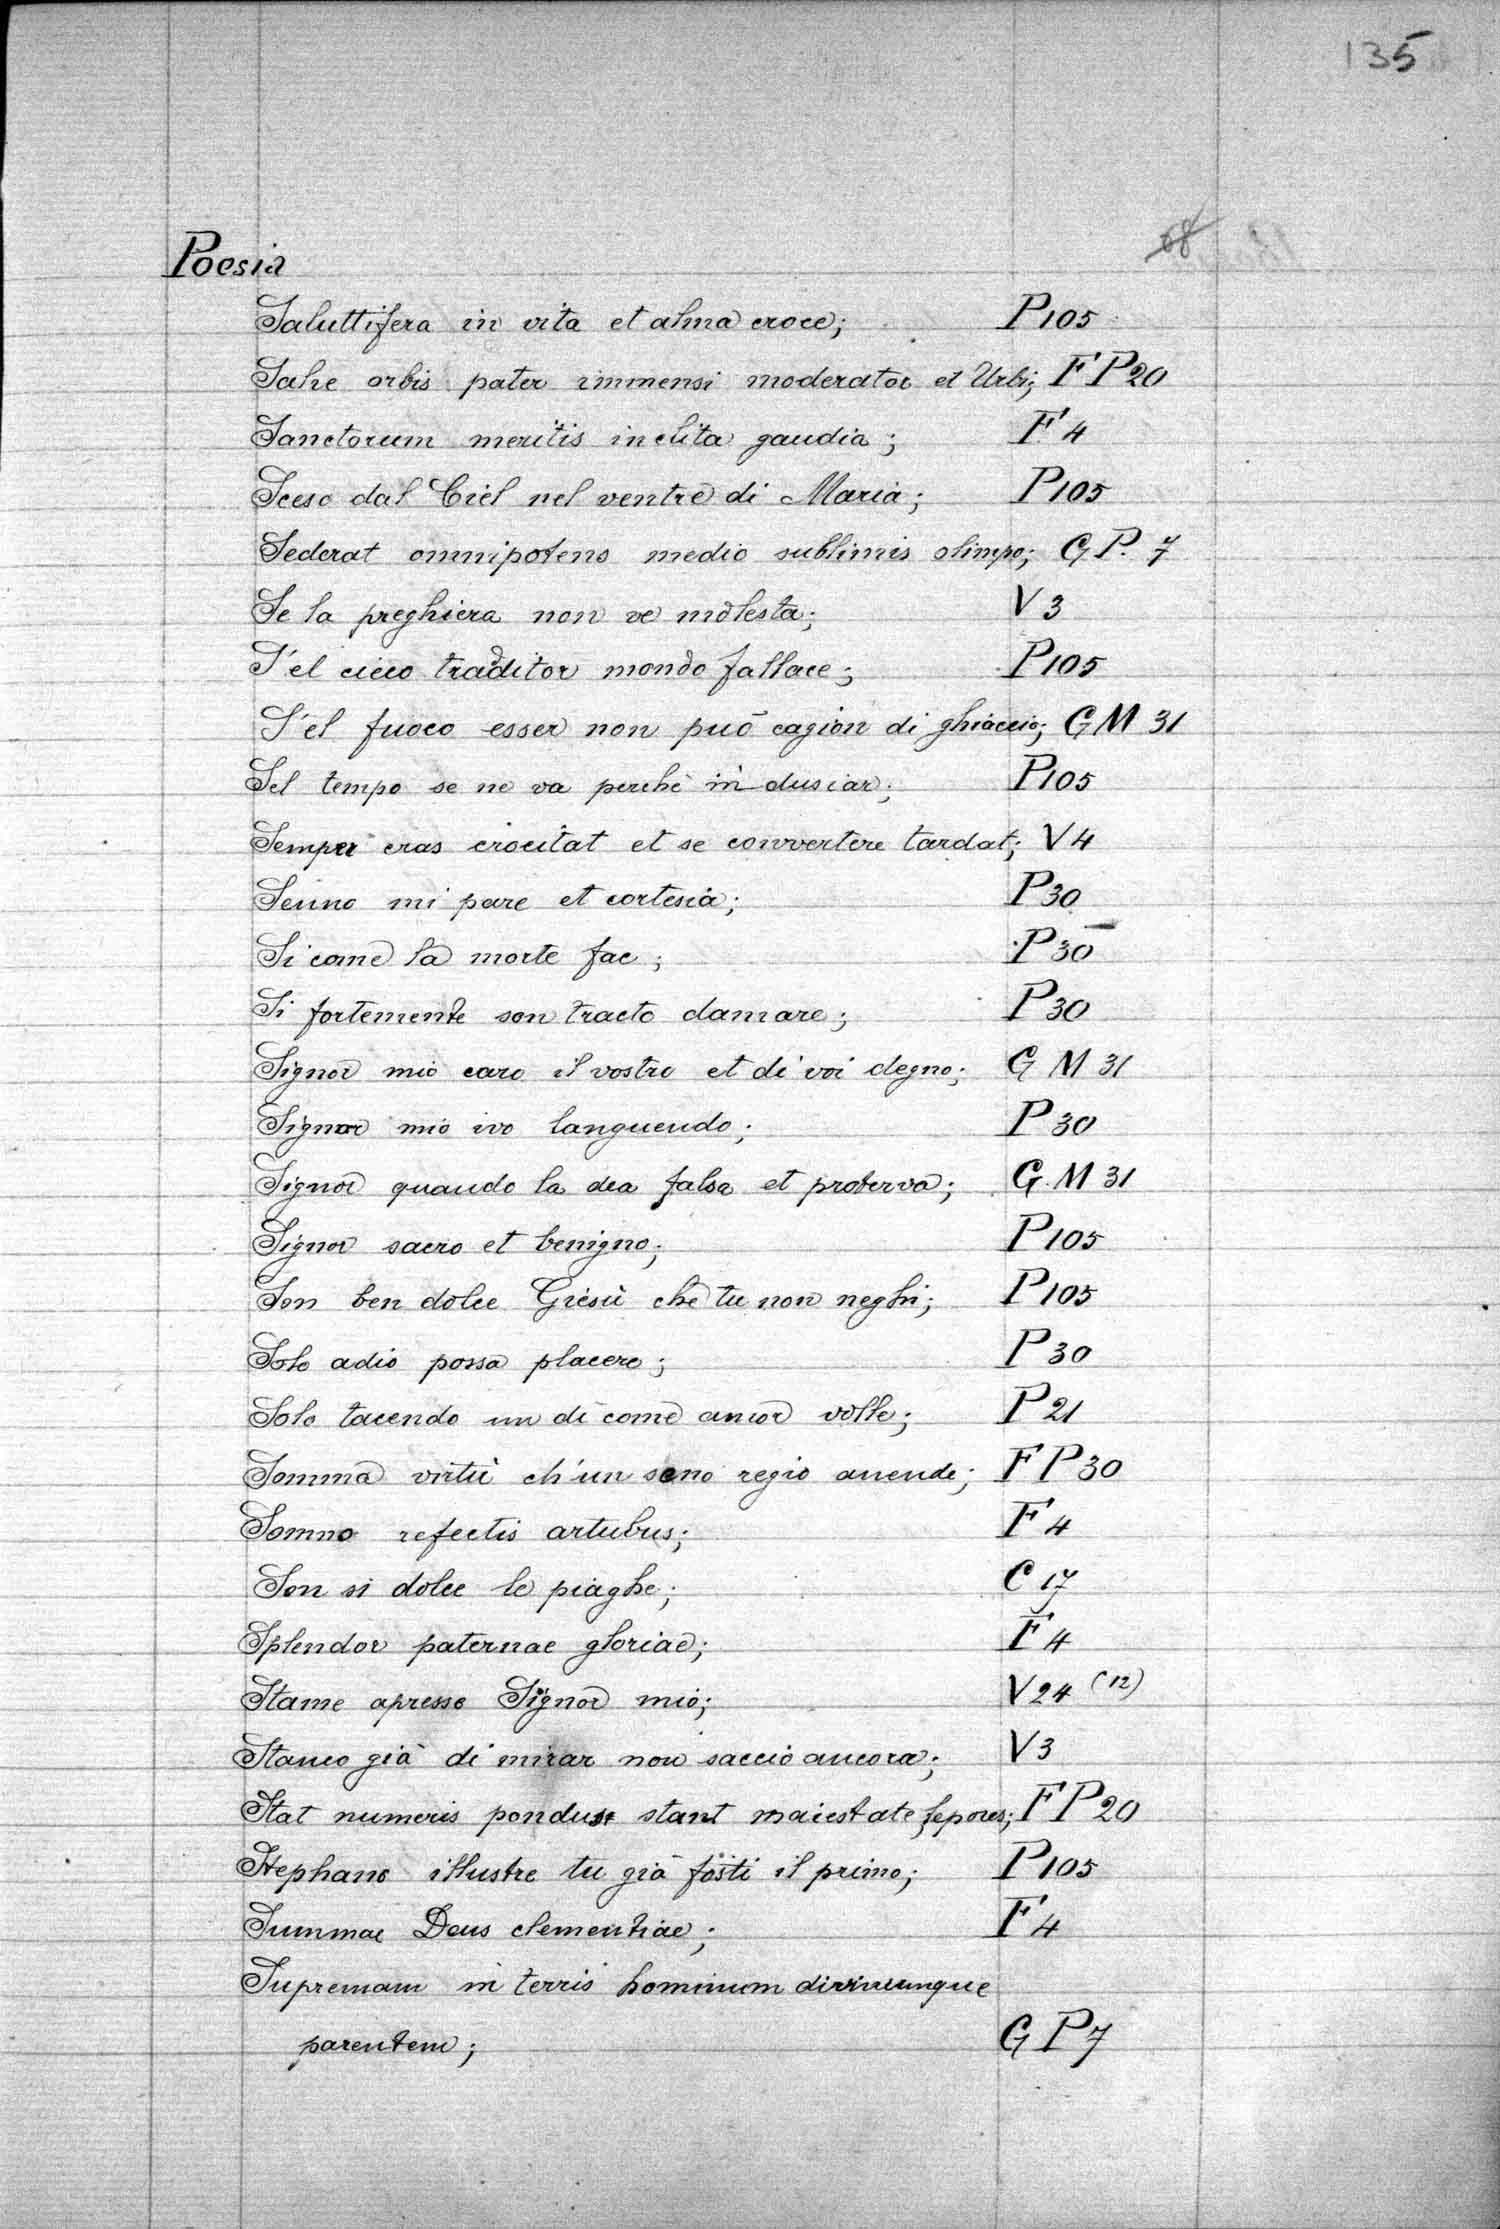 135
68
Poesia
Saluttifera in vita et alma croce; P105
Salve orbis pater immensi moderator et Urbi; FP20
Sanctorum meritis inclita gaudia; F4
Sceso dal Ciel nel ventre di Maria; P105
Sederat omnipotens medio sublimis olimpo; GP. 7
Se la preghiera non ve molesta; V3
S'el cieco traditor mondo fallace; P105
S'el fuoco esser non può cagion di ghiaccio; GM 31
Sel tempo se ne va perchè in dusiar; P105
Semper cras crocitat et se convertere tardat; V4
Senno mi pare et cortesia; P30
Si come la morte fac; P30
Si fortemente son tracto damare; P30
Signor mio caro il vostro et di voi degno; G M 31
Signor mio ivo languendo; P30
Signor quando la dea falsa et proterva; G. M 31
Signor sacro et benigno; P105
Son ben dolce Giesù che tu non neghi; P105
Solo adio possa placere; P30
Solo tacendo un dì come amor volle; P21
Somma virtù ch'un seno regio avende; FP30
Somno refectis artubus; F4
Son si dolce le piaghe; C 17
Splendor paternae gloriae; F4
Stame apresso Signor mio; V24 (12)
Stanco già di mirar non saccio ancora; V3
Stat numeris pondus stant maiestate lepores; FP20
Stephano illustre tu già fosti il primo; P105
Summae Deus clementiae; F4
Supremam in terris hominum divinumque
parentem; GP7